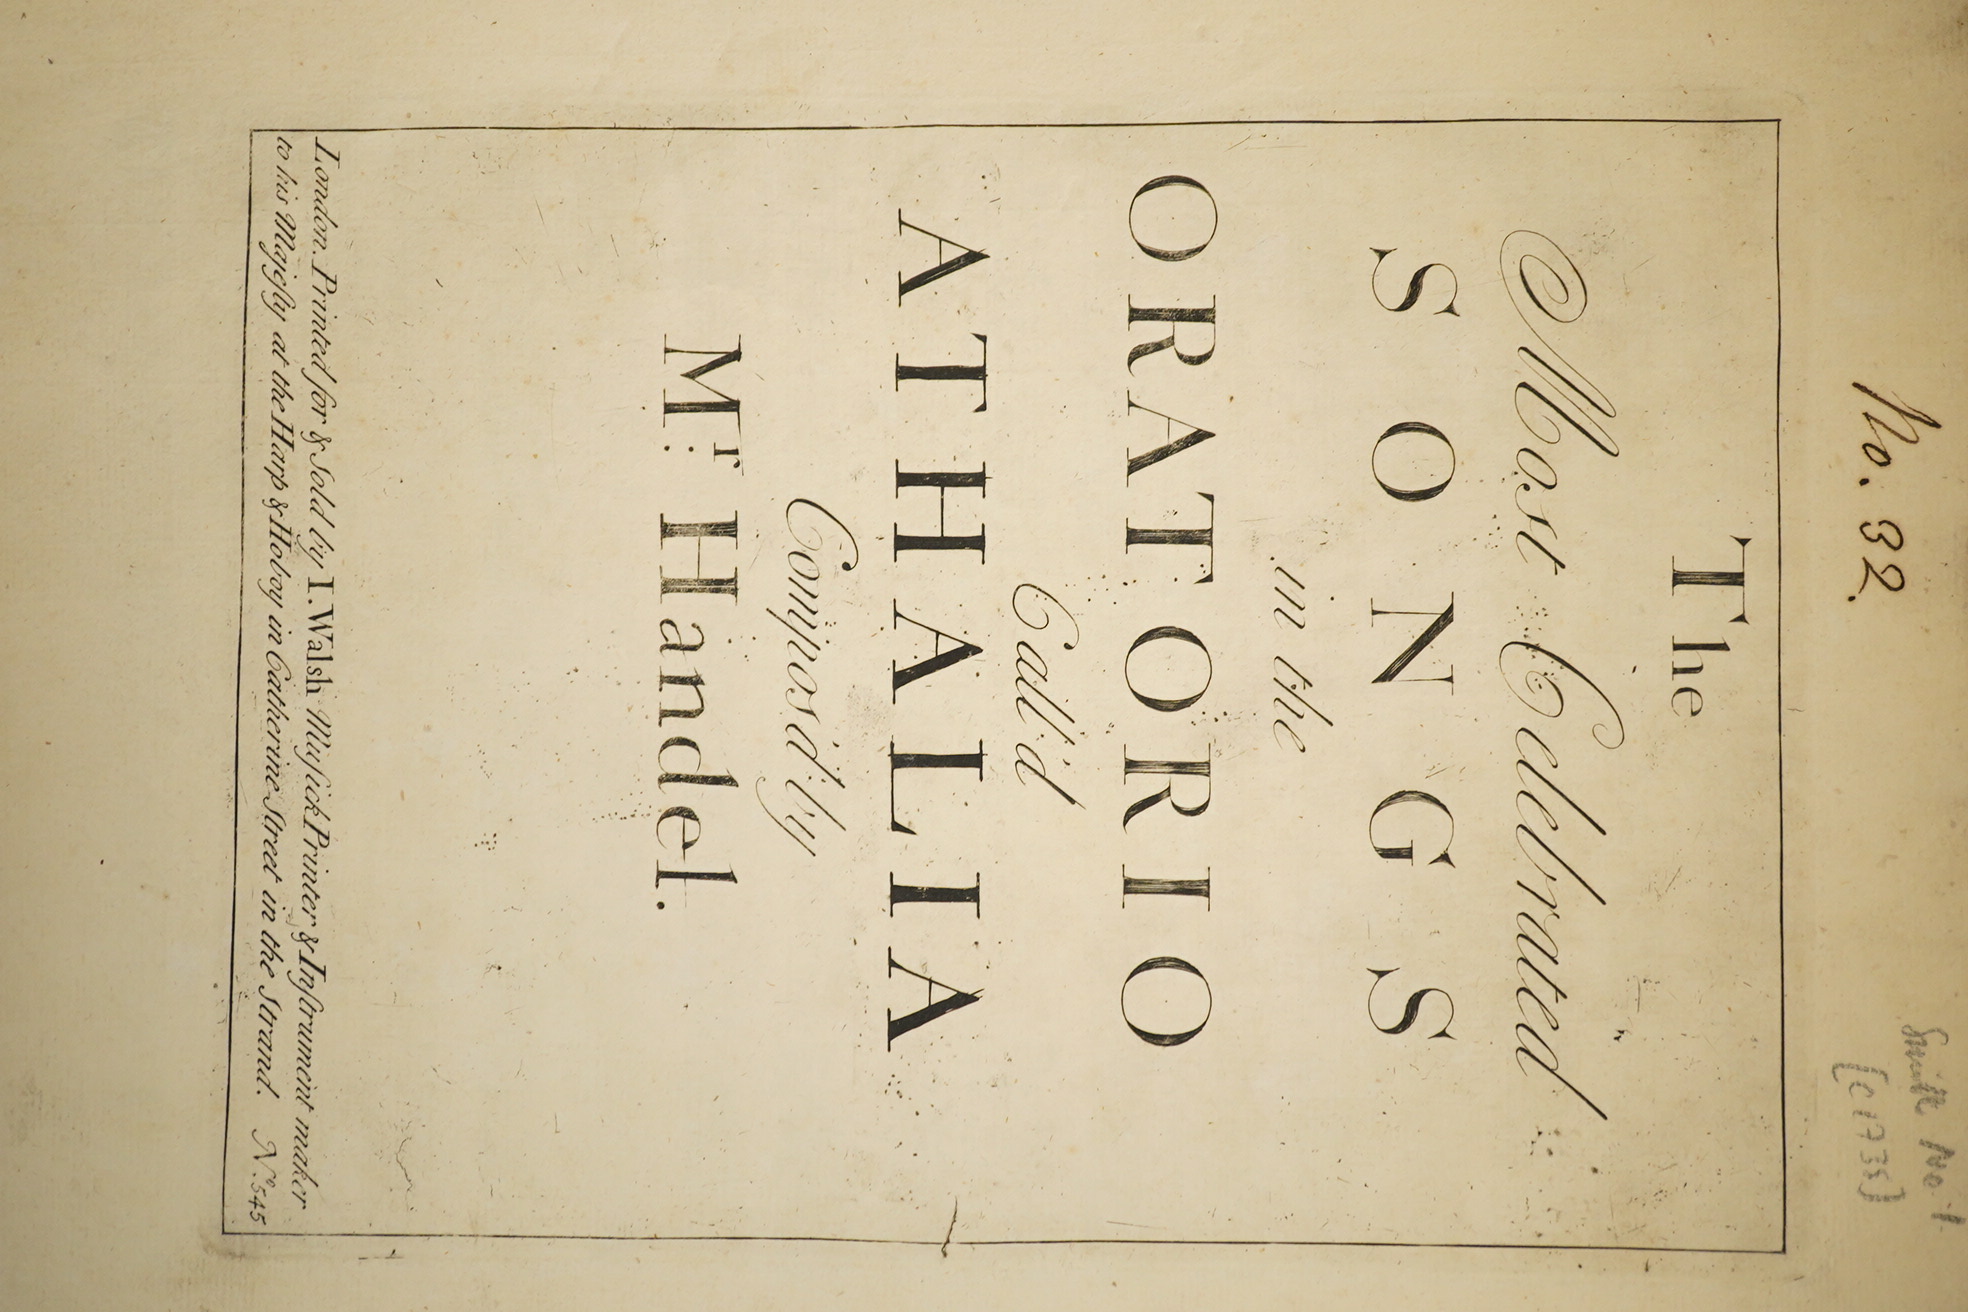 No. 32.
Smith No 1
[c 1735]
The
Most Celebrated
SONGS
in the
ORATORIO
Call'd
ATHALIA
Compos'd by
Mr. Handel.
London. Printed for & sold by I. Walsh Musick Printer & Instrument maker
to his Majesty at the Harp & Hoboy in Catherine Street in the Strand. No. 545